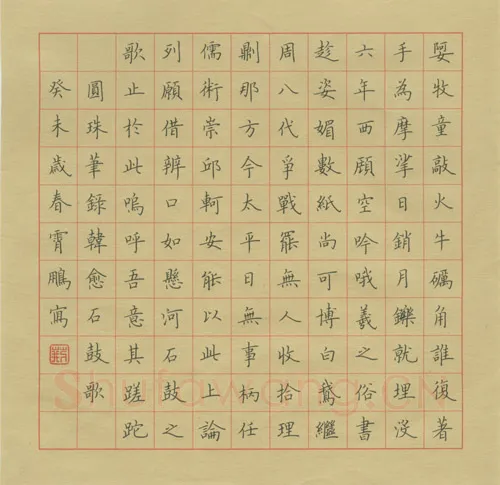 娿牧童敲火牛礪角誰復著
手為摩挲日銷月鑠就埋沒
六年西顧空吟哦羲之俗書
趁姿媚數紙尚可博白鵝繼
周八代爭戰罷無人收拾理
則那方今太平日無事柄任
儒術崇邱軻安能以此上論
列願借辨口如懸河石鼓之
歌止於此嗚呼吾意其蹉跎
圓珠筆錄韓愈石鼓歌
癸未歲春霄鵬寫
Shufawang.CN